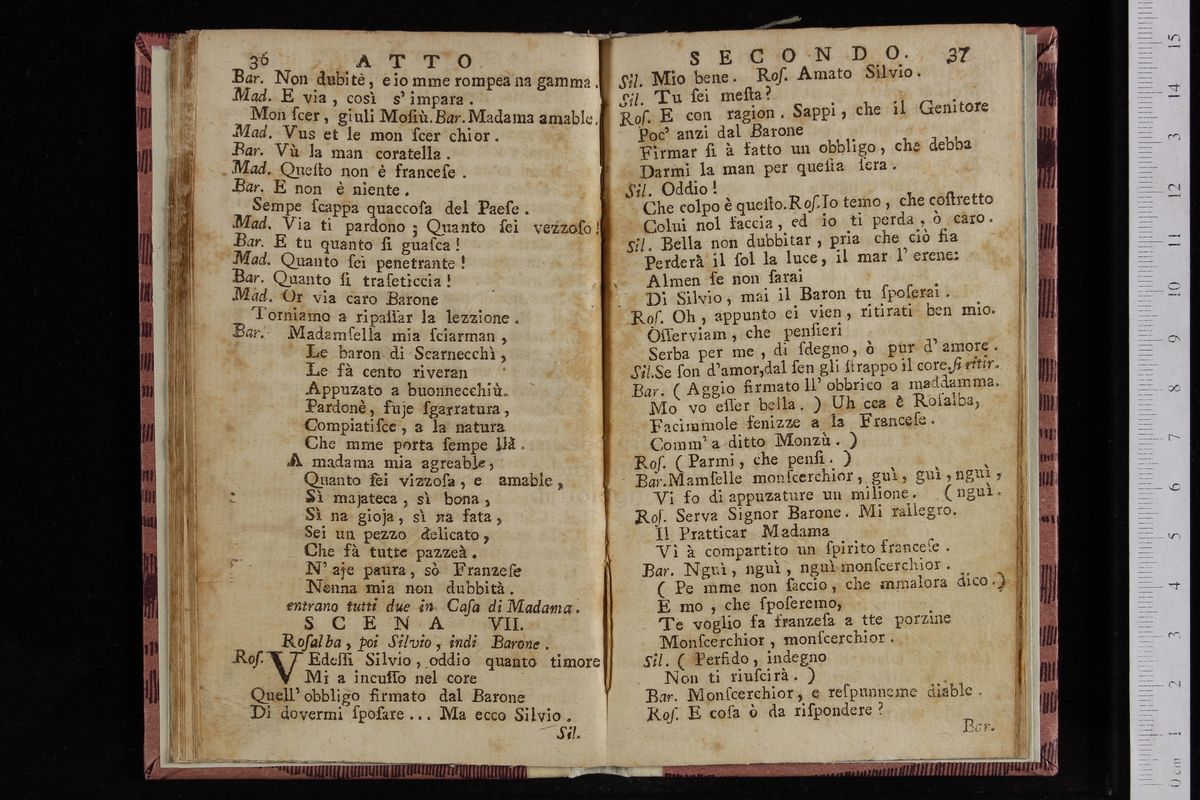 36 ATTO
Bar. Non dubitè, e io mme rompea na gamma.
Mad. E via, così s' impara.
Mon ſcer, giuli Moſiù. Bar. Madama amable.
Mad. Vus et le mon ſcer chior.
Bar. Vù la man coratella.
Mad. Queſto non è franceſe.
Bar. E non è niente.
Sempe ſcappa quaccoſa del Paeſe.
Mad. Via ti pardono; Quanto ſei vezzoſo!
Bar. E tu quanto ſi guaſca!
Mad. Quanto ſei penetrante!
Bar. Quanto ſi traſeticcia!
Mad. Or via caro Barone
Torniamo a ripaſſar la lezzione.
Bar. Madamſella mia ſciarman,
Le baron di Scarnecchì,
Le fà cento riveran
Appuzato a buonnecchiù.
Pardonè, fuje ſgarratura,
Compiatiſce, a la natura
Che mme porta ſempe llà.
A madama mia agreable,
Quanto ſei vizzoſa, e amable,
Sì majateca, sì bona,
Sì na gioja, sì na fata,
Sei un pezzo delicato,
Che fà tutte pazzeà.
N' aje paura, sò Franzeſe
Nenna mia non dubbità.
entrano tutti due in Caſa di Madama.
SCENA VII.
Roſalba, poi Silvio, indi Barone.
Roſ. VEdeſſi Silvio, oddio quanto timore
Mi a incuſſo nel core
Quell' obbligo firmato dal Barone
Di dovermi ſpoſare... Ma ecco Silvio.
Sil.
SECONDO. 37
Sil. Mio bene. Roſ. Amato Silvio.
Sil. Tu ſei meſta?
Roſ. E con ragion. Sappi, che il Genitore
Poc' anzi dal Barone
Firmar ſi à fatto un obbligo, che debba
Darmi la man per queſta ſera.
Sil. Oddio!
Che colpo è queſto. Roſ. Io temo, che coſtretto
Colui nol faccia, ed io ti perda, ò caro.
Sil. Bella non dubbitar, pria che ciò fia
Perderà il ſol la luce, il mar l' erene:
Almen ſe non ſarai
Di Silvio, mai il Baron tu ſpoſerai.
Roſ. Oh, appunto ei vien, ritirati ben mio.
Oſſerviam, che penſieri
Serba per me, di ſdegno, ò pur d' amore.
Sil. Se ſon d'amor, dal ſen gli ſtrappo il core. ſi ritir.
Bar. (Aggio firmato ll' obbrico a maddamma.
Mo vo eſſer bella.) Uh cca è Roſalba,
Facimmole fenizze a la Franceſe.
Comm' a ditto Monzù.)
Roſ. (Parmi, che penſi.)
Bar. Mamſelle monſcerchior, guì, guì, nguì,
Vi fo di appuzature un milione. (nguì.
Roſ. Serva Signor Barone. Mi rallegro.
Il Pratticar Madama
Vi à compartito un ſpirito franceſe.
Bar. Nguì, nguì, nguì monſcerchior.
(Pe mme non ſaccio, che mmalora dico.)
E mo, che ſpoſeremo,
Te voglio fa franzeſa a tte porzine
Monſcerchior, monſcerchior.
Sil. (Perfido, indegno
Non ti riuſcirà.)
Bar. Monſcerchior, e reſpunneme diable.
Roſ. E coſa ò da riſpondere?
Bar.
15
14
13
12
11
10
9
8
7
6
5
4
3
2
1
0 cm